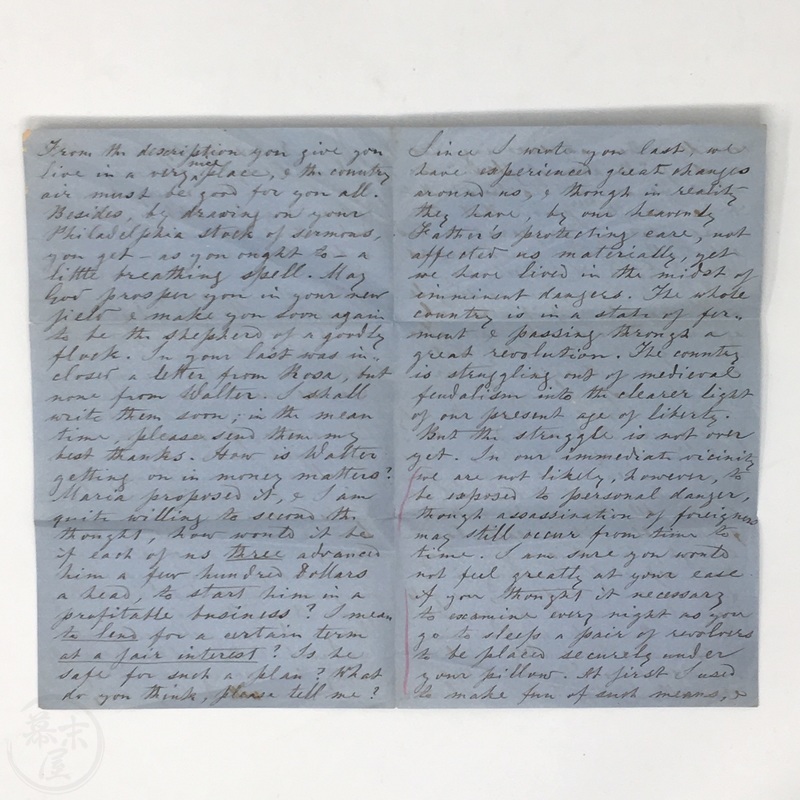 From the description you give you
live in a very nice place, & the country
air must be good for you all.
Besides, by drawing on your
Philadelphia stock of sermons,
you get – as you ought to – a
little breathing spell. May
God prosper you in your new
field & make you soon again
to be the shepherd of a goodly
flock. In your last was in-
closed a letter from Rosa, but
none from Walter. I shall
write them soon; in the mean
time, please send them my
best thanks. How is Walter
getting on in money matters?
Maria proposed it, & I am
quite willing to second the
thought, how would it be
if each of us three advanced
him a few hundred Dollars
a head, to start him in a
profitable business? I mean
to lend for a certain term
at a fair interest? Is he
safe for such a plan? What
do you think, please tell me?
Since I wrote you last, we
have experienced great changes
around us, & though in reality
they have, by our heavenly
Father's protecting care, not
affected us materially, yet
we have lived in the midst of
imminent dangers. The whole
country is in a state of fer-
ment & passing through a
great revolution. The country
is struggling out of medieval
feudalism into the clearer light
of our present age of liberty.
But the struggle is not over
yet. In our immediate vicinity
we are not likely, however, to
be exposed to personal danger,
though assassination of foreigners
may still occur from time to
time. I am sure you would
not feel greatly at your ease
if you thought it necessary
to examine every night as you
go to sleep a pair of revolvers
to be placed securely under
your pillow. At first I used
to make fun of such means, &
幕末屋